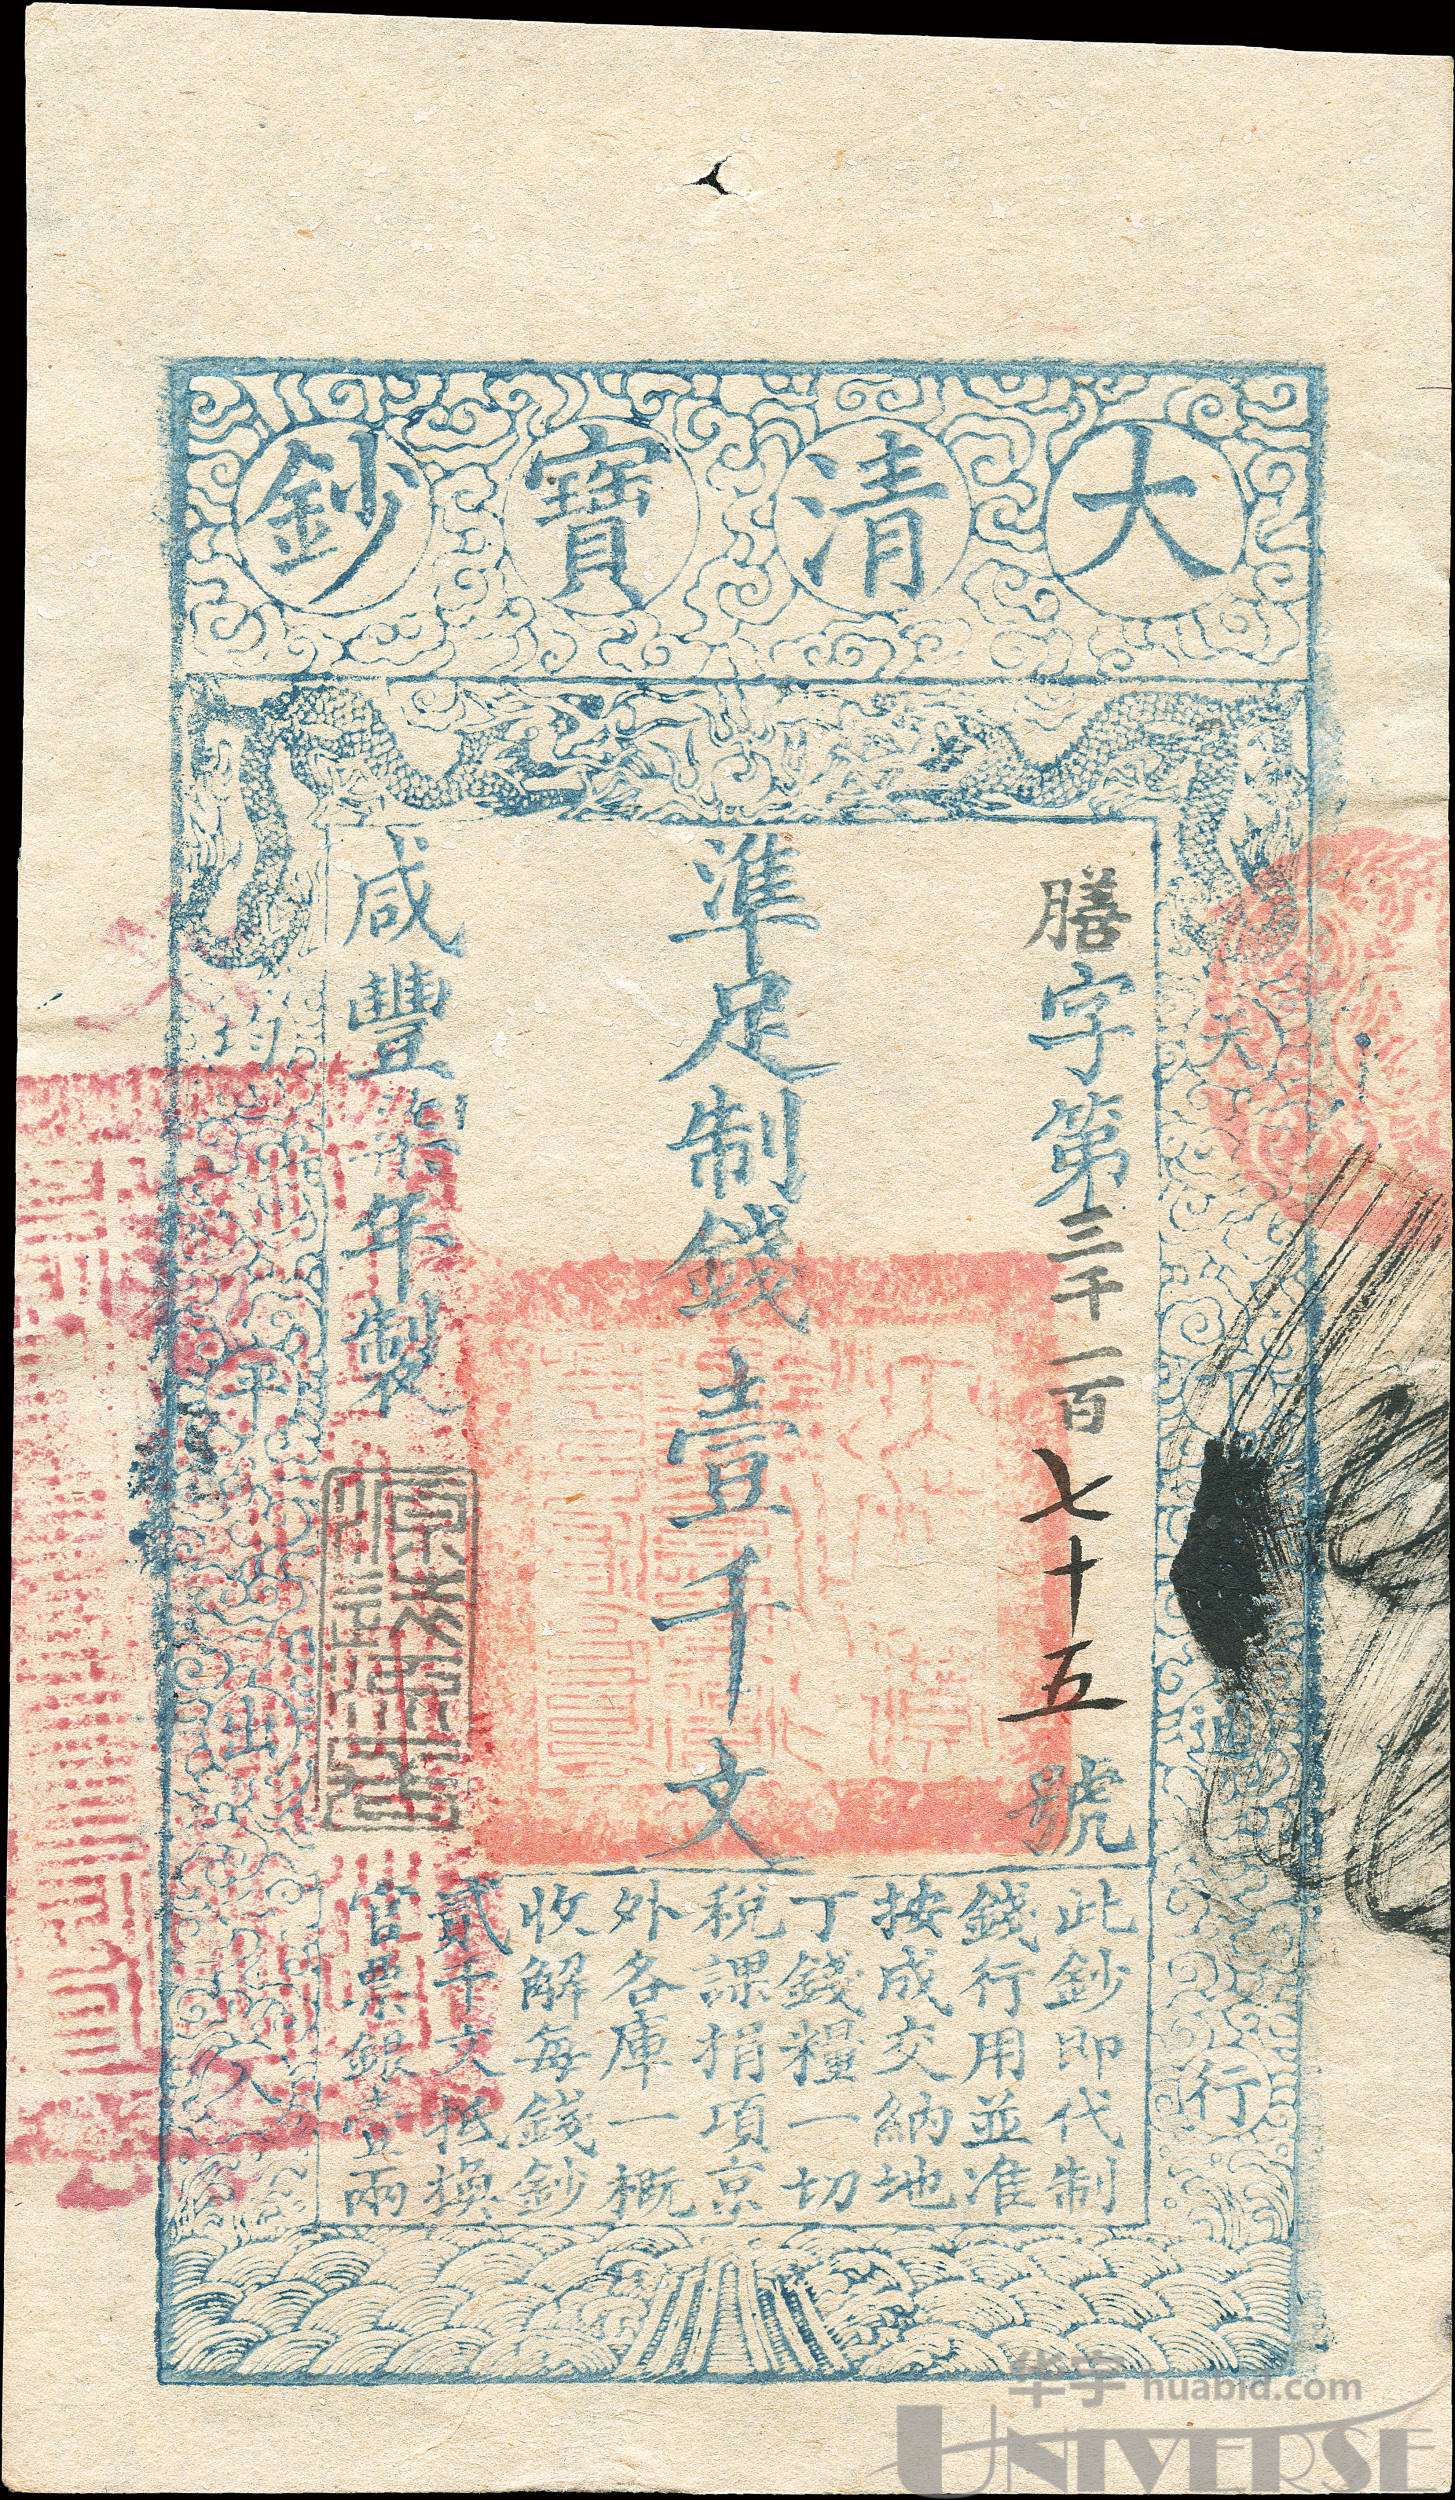 大清寶鈔
天下通行
膳字第三千一百七十五號
準足制錢壹千文
咸豐年製
均平出入
此鈔即代制
錢行用並准
按成交納地
丁錢糧一切
稅課捐項京
外各庫一概
收解每錢鈔
貳千文抵換
官票銀壹兩
华宇 huabid.com
UNIVERSE